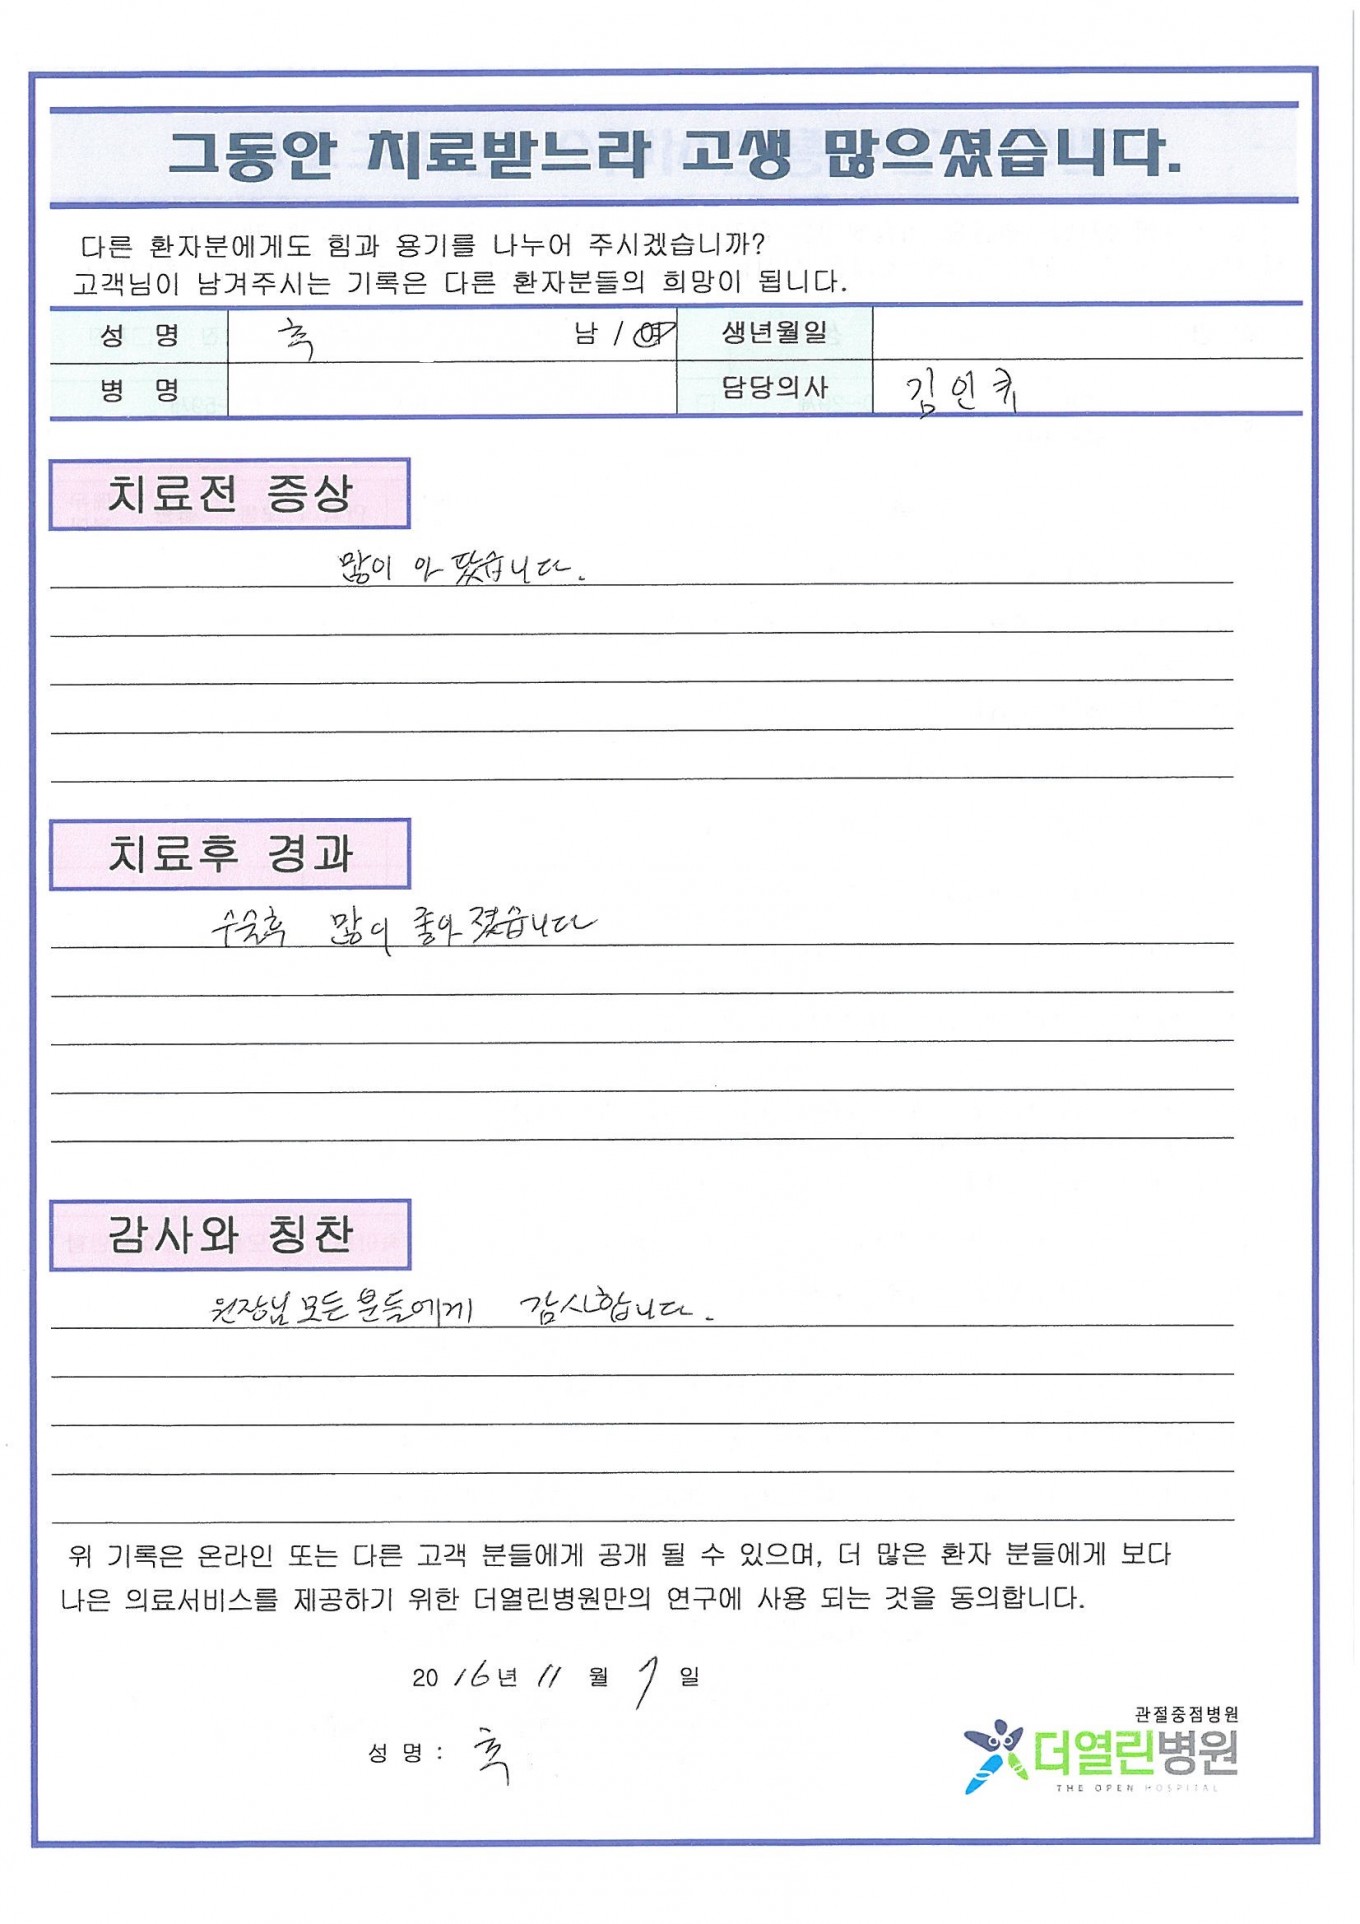 그동안 치료받느라 고생 많으셨습니다.
다른 환자분에게도 힘과 용기를 나누어 주시겠습니까?
고객님이 남겨주시는 기록은 다른 환자분들의 희망이 됩니다.
성 명 남 / 여 생년월일
병 명 담당의사 김인
치료전 증상
많이 아팠습니다.
치료후 경과
수술후 많이 좋아졌습니다
감사와 칭찬
원장님 모든 분들에게 감사합니다.
위 기록은 온라인 또는 다른 고객 분들에게 공개 될 수 있으며, 더 많은 환자 분들에게 보다
나은 의료서비스를 제공하기 위한 더열린병원만의 연구에 사용 되는 것을 동의합니다.
2016년 11 월 7 일
성 명 :
관절중점병원
더열린병원
THE OPEN HOSPITAL